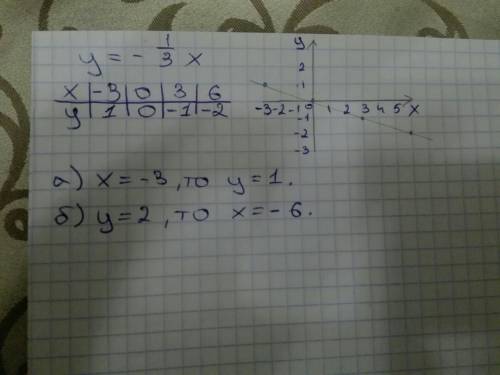 y = - 1/3 x
x | -3 | 0 | 3 | 6
y | 1 | 0 | -1 | -2
y
2
1
-3 -2 -1 0 1 2 3 4 5 x
-1
-2
-3
а) x = -3, то y = 1.
б) y = 2, то x = - 6.